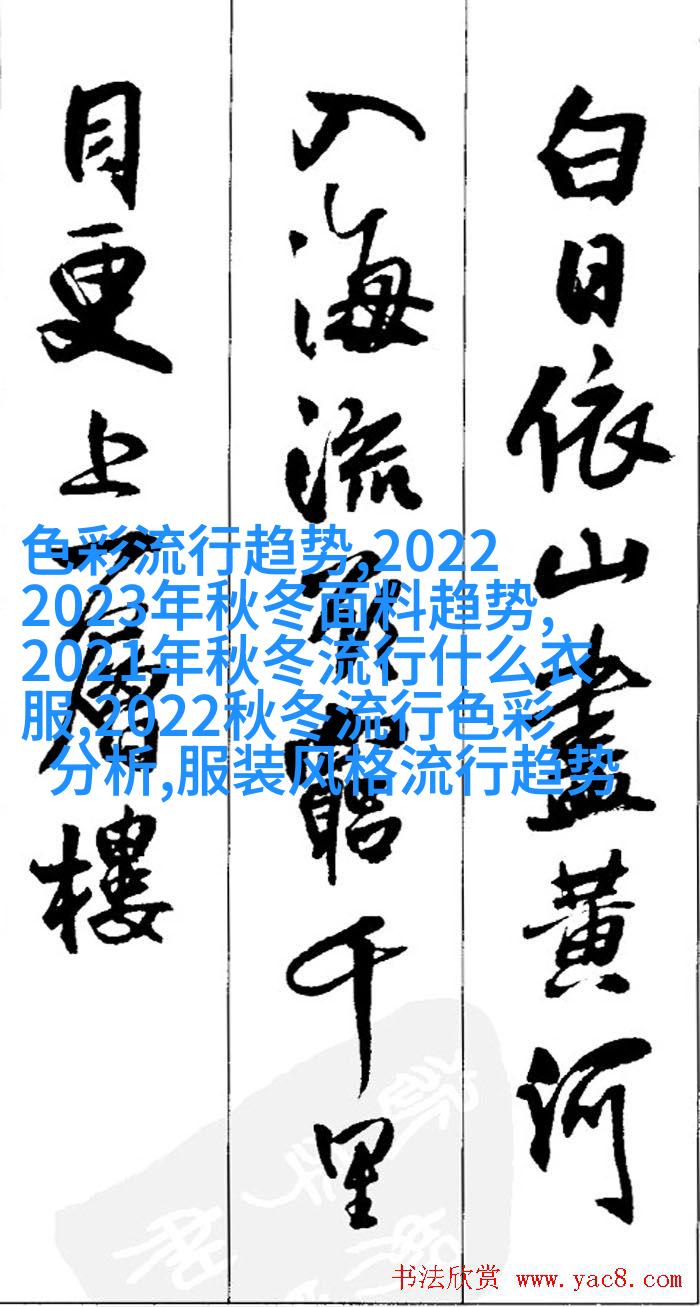 白日依山盡黃河
入海流欲窮千里
目更上一層樓
色彩流行趋势,2022
2023年秋冬面料趋势,
2021年秋冬流行什么衣
服,2022秋冬流行色彩
分析,服装风格流行趋势
书法欣赏 www.yac8.com